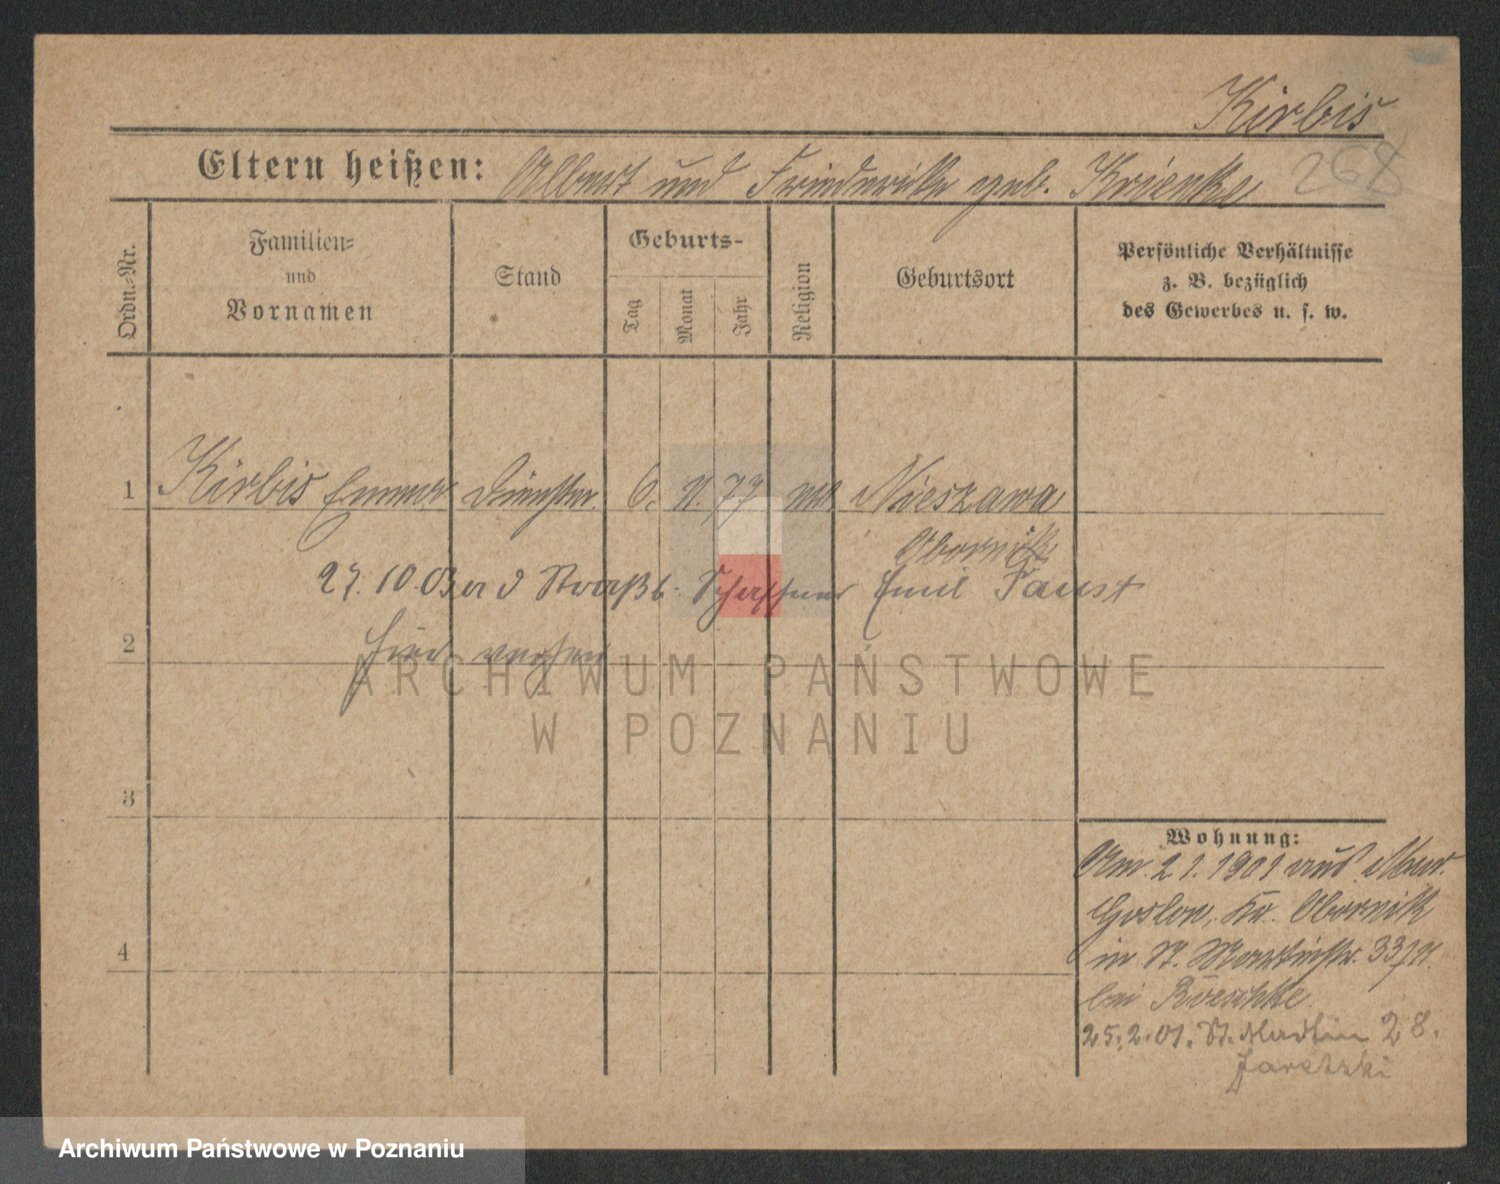 Kirbis
268
Eltern heißen: Albert und Friederike geb. Krienke
Ordn.-Nr.
Familien-
und
Vornamen
Stand
Geburts-
Tag
Monat
Jahr
Religion
Geburtsort
Persönliche Verhältnisse
z. B. bezüglich
des Gewerbes u. s. w.
1 Kirbis Emma 6. 11. 77 Nieszawa
Obornik
27. 10. 03 Schaffner Emil Faust
hier
2
ARCHIWUM PAŃSTWOWE
W POZNANIU
3
4
Wohnung:
Am 2 1. 1901 aus Mur.
Goslin, Kr. Obornik
in St. Martinstr. 33
bei Roeschke
25. 2. 01. St. Martin 28.
Jaretzki
Archiwum Państwowe w Poznaniu